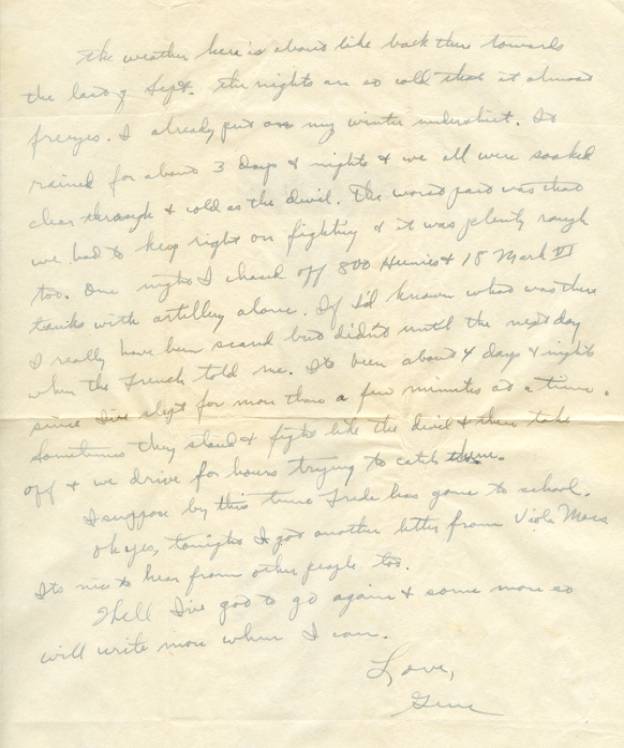 The weather here is about like back there towards
the last of Sept. The nights are so cold that it almost
freezes. I already put on my winter undershirt. It
rained for about 3 days & nights & we all were soaked
clear through & cold as the devil. The worst part was that
we had to keep right on fighting & it was plenty rough
too. One night I chased off 800 Heinies & 18 Mark VI
tanks with artillery alone. If I'd known what was there
I really have been scared but didn't until the next day
when the French told me. Its been about 4 days & nights
since I've slept for more than a few minutes at a time.
Sometimes they stand & fight like the devil & then take
off & we drive for hours trying to catch them.
I suppose by this time has gone to school.
Oh yes, tonight I got another letter from Viola
Its nice to hear from other people too.
I've got to go again & some more so
will write more when I can.
Love,
Gene